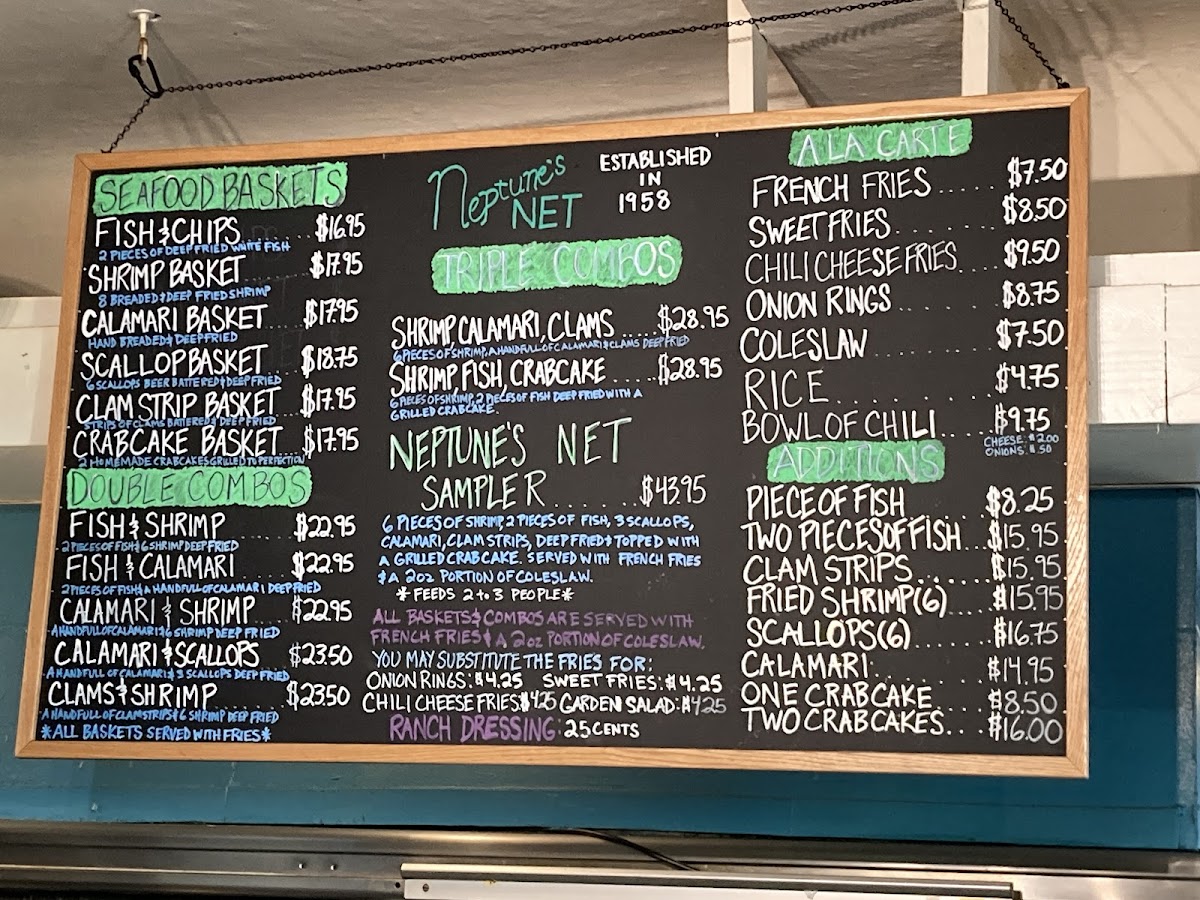 SEAFOOD BASKETS
FISH & CHIPS ........ $16.95
2 PIECES OF DEEP FRIED WHITE FISH
SHRIMP BASKET ..... $17.95
8 BREADED & DEEP FRIED SHRIMP
CALAMARI BASKET .... $17.95
HAND BREADED & DEEP FRIED
SCALLOP BASKET .... $18.75
6 SCALLOPS BEER BATTERED & DEEP FRIED
CLAM STRIP BASKET ... $17.95
STRIPS OF CLAMS BATTERED & DEEP FRIED
CRABCAKE BASKET ... $17.95
2 HOMEMADE CRABCAKES GRILLED TO PERFECTION
DOUBLE COMBOS
FISH & SHRIMP ....... $22.95
2 PIECES OF FISH & 6 SHRIMP DEEP FRIED
FISH & CALAMARI ...... $22.95
2 PIECES OF FISH & A HANDFULL OF CALAMARI DEEP FRIED
CALAMARI & SHRIMP .... $22.95
A HANDFULL OF CALAMARI & 6 SHRIMP DEEP FRIED
CALAMARI & SCALLOPS ... $23.50
A HANDFULL OF CALAMARI & 3 SCALLOPS DEEP FRIED
CLAMS & SHRIMP ....... $23.50
A HANDFULL OF CLAM STRIPS & 6 SHRIMP DEEP FRIED
*ALL BASKETS SERVED WITH FRIES*
Neptune's
NET
ESTABLISHED
IN
1958
TRIPLE COMBOS
SHRIMP, CALAMARI, CLAMS ..... $28.95
6 PIECES OF SHRIMP, A HANDFULL OF CALAMARI & CLAMS DEEP FRIED
SHRIMP, FISH, CRABCAKE ..... $28.95
6 PIECES OF SHRIMP, 2 PIECES OF FISH DEEP FRIED WITH A
GRILLED CRABCAKE.
NEPTUNE'S NET
SAMPLER ........ $43.95
6 PIECES OF SHRIMP, 2 PIECES OF FISH, 3 SCALLOPS,
CALAMARI, CLAM STRIPS, DEEP FRIED & TOPPED WITH
A GRILLED CRAB CAKE. SERVED WITH FRENCH FRIES
& A 2oz PORTION OF COLESLAW.
* FEEDS 2 to 3 PEOPLE *
ALL BASKETS & COMBOS ARE SERVED WITH
FRENCH FRIES & A 2oz PORTION OF COLESLAW.
YOU MAY SUBSTITUTE THE FRIES FOR:
ONION RINGS: $4.25 SWEET FRIES: $4.25
CHILI CHEESE FRIES $4.25 GARDEN SALAD: $4.25
RANCH DRESSING: 25 CENTS
A LA CARTE
FRENCH FRIES ...... $7.50
SWEET FRIES ......... $8.50
CHILI CHEESE FRIES .... $9.50
ONION RINGS ........ $8.75
COLESLAW ......... $7.50
RICE ............ $4.75
BOWL OF CHILI .... $9.75
CHEESE: $2.00
ONIONS: $.50
ADDITIONS
PIECE OF FISH ...... $8.25
TWO PIECES OF FISH ... $15.95
CLAM STRIPS ....... $15.95
FRIED SHRIMP (6) .... $15.95
SCALLOPS (6) ....... $16.75
CALAMARI: ......... $14.95
ONE CRABCAKE ..... $8.50
TWO CRABCAKES .... $16.00